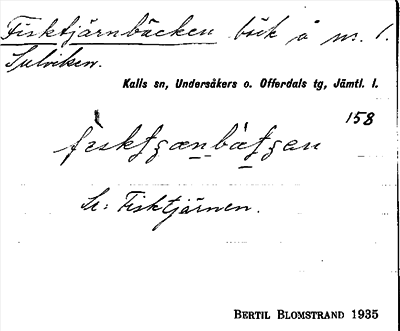 Fisktjärnbäcken bäck å m. 1.
Sulviken.
Kalls sn, Undersåkers o. Offerdals tg, Jämtl. l.
158
Se: Fisktjärnen.
BERTIL BLOMSTRAND 1935